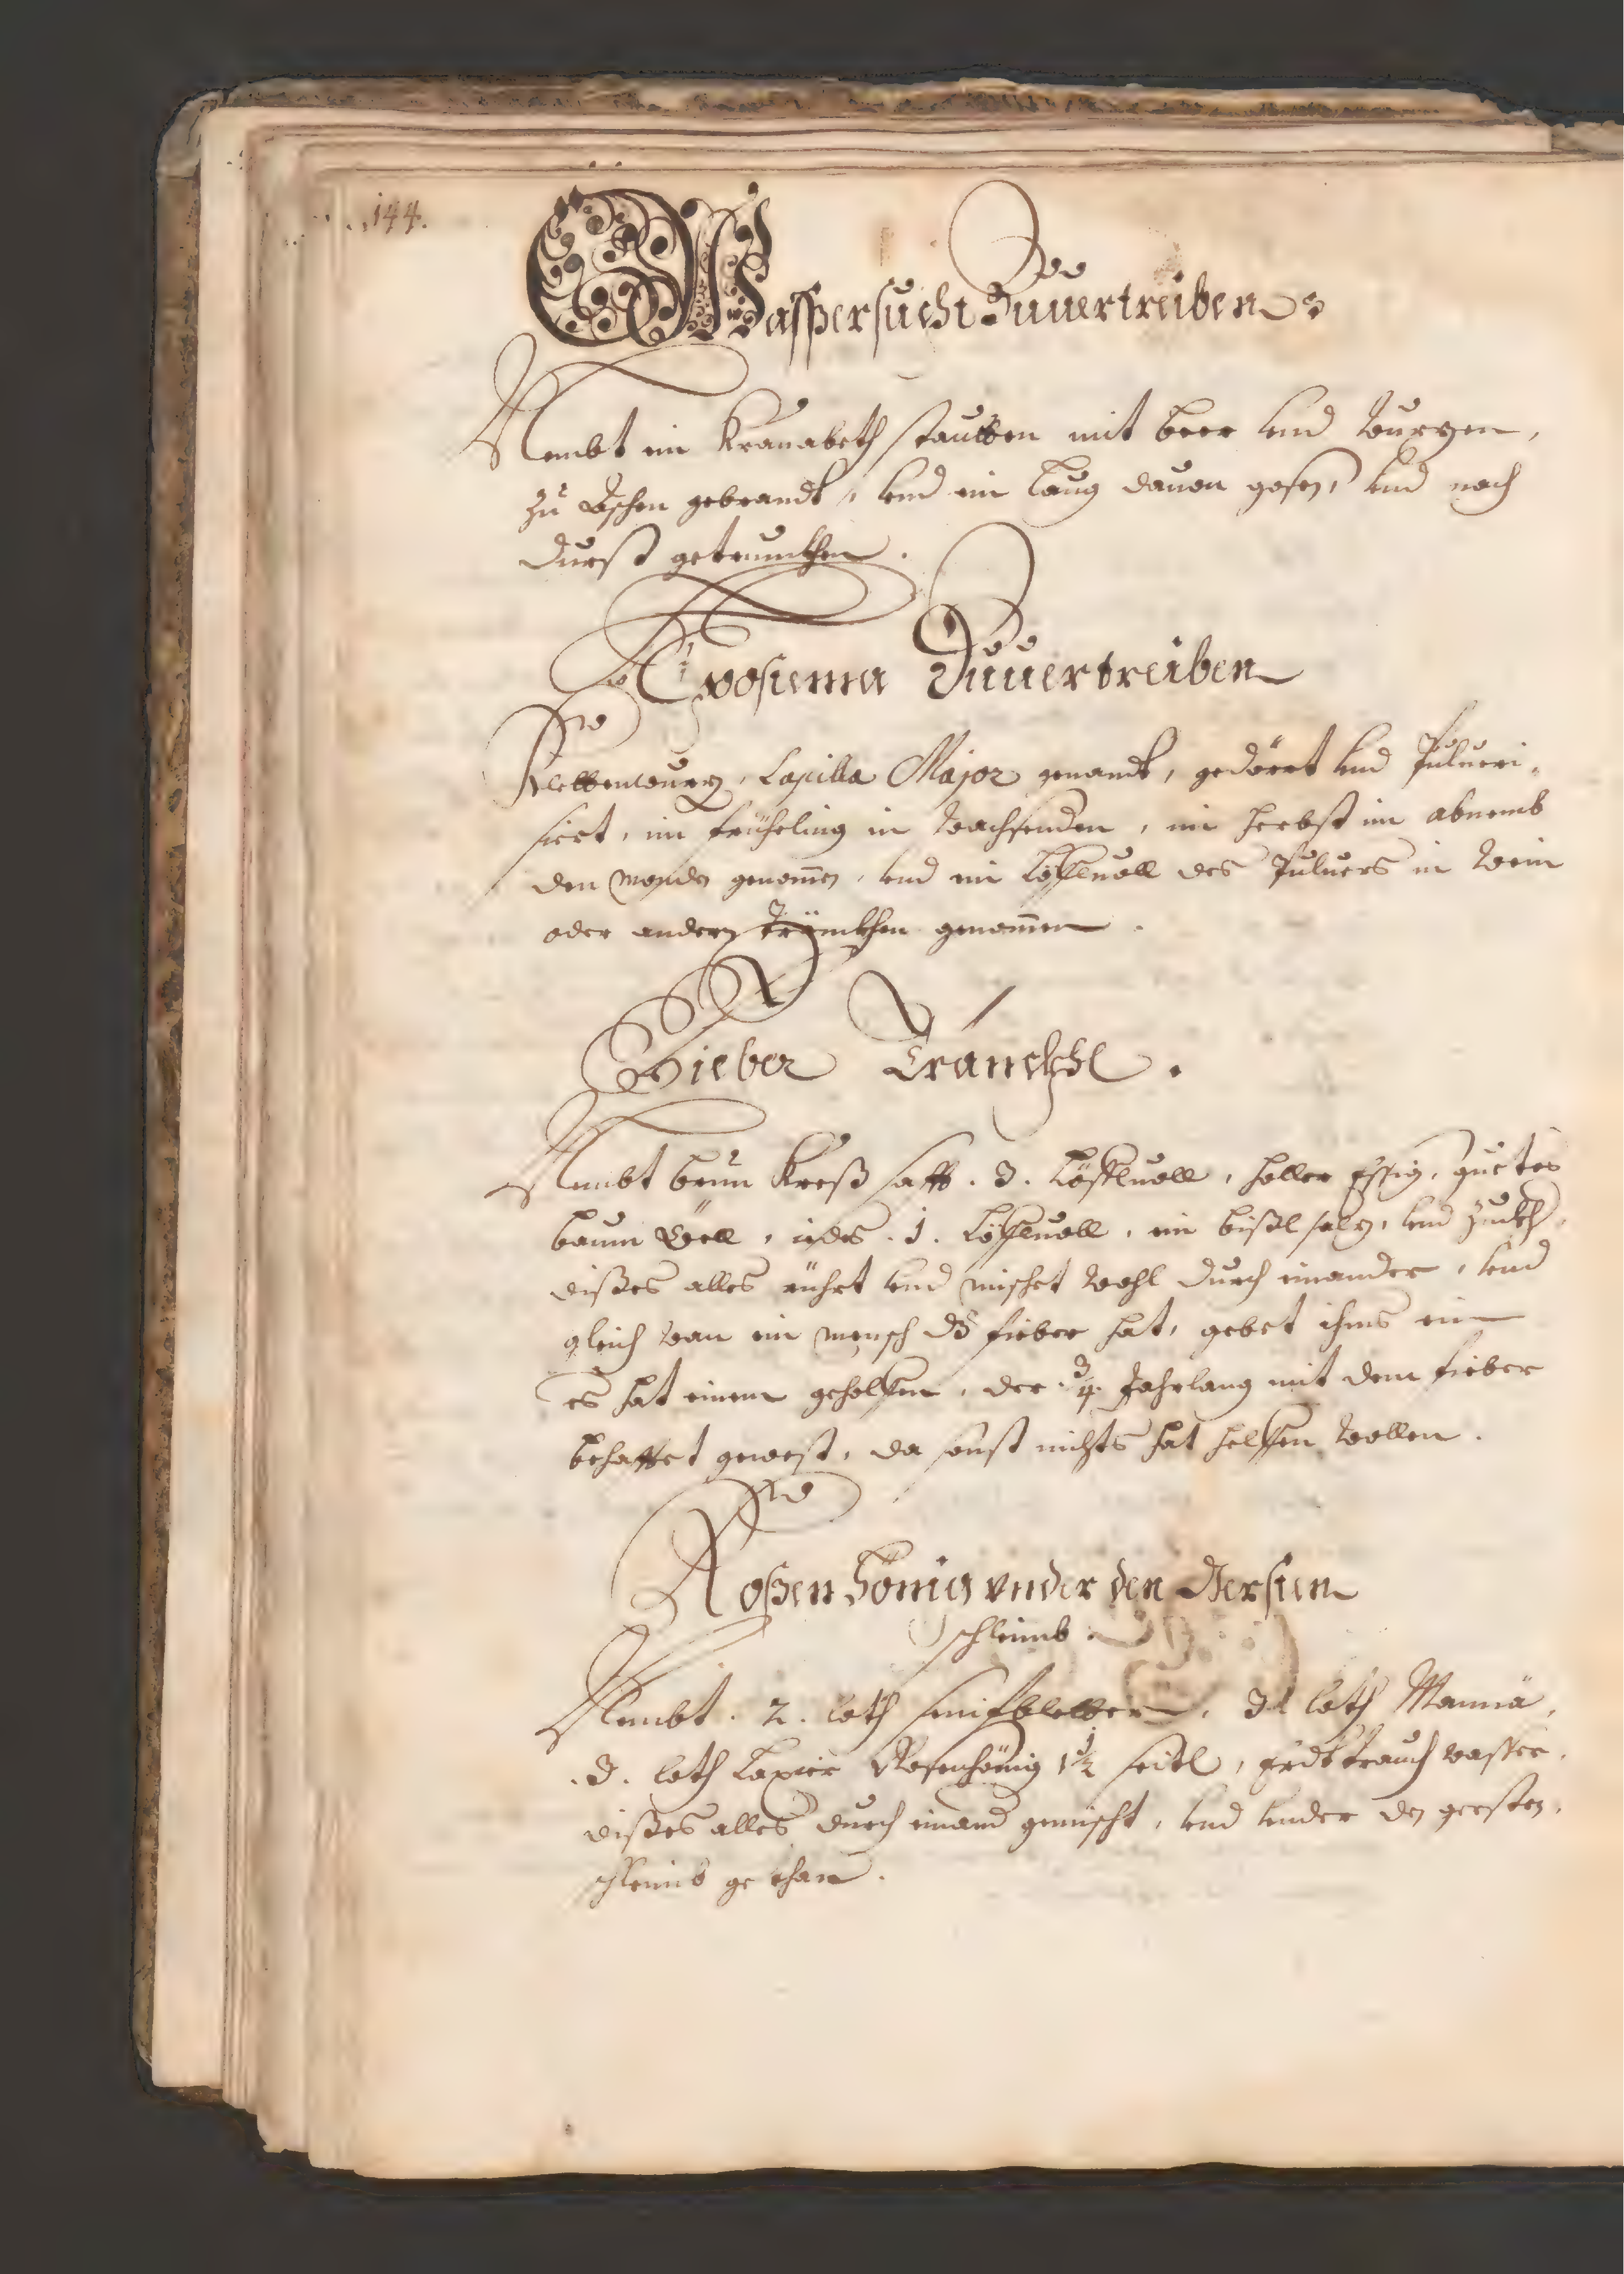 144.
Wasßersucht Zuuertreiben
Nembt ein Kranabeth stautten mit beer vnd Wurzen,
Zu Aschen gebrandt, vnd ein laug dauon gosen, vnd nach
Durst getrunckhen.
Apostema Zuuertreiben
Klettenwurz, Lapilla Major genandt, gedörrt vnd Pulueri,,
siert, im früheling in Wachsenden, im herbst im abnemb
den Monden genomen, vnd ein Löffluoll des Puluers in Wein
oder andern Tränckhen genomen.
Fieber Tränckhl.
Nembt brun Kreß safft. 3. Löffluoll, holler Essig, guetes
baum Öell, iedes. 1. Löffluoll, ein bißl salz, vnd Zuckh.
dißes alles rührt vnd mischet Wohl Durch einander, vnd
gleich Wan ein mensch dz fieber hat, gebet ihms ein
es hat einem geholffen, der. 3/4. Jahrlang mit dem fieber
behafftet gewest, da sonst nichts hat helffen Wollen.
Roßen Hönig vnder den Gersten
schleimb.
Nembt. 2. loth senifbletter, loth Manna,
.3. loth Laxier Rosenhönig 1 1/2 seitl, Erdtrauch Wasser,
dißes alles Durch einand gemischt, vnd vnder den gersten,
schleimb gethan.